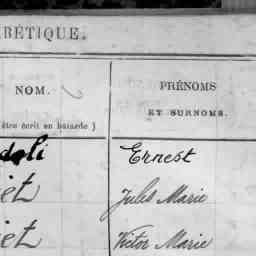 BÉTIQUE.
NOM.
PRÉNOMS
ET SURNOMS.
être écrit en batarde )
doli Ernest
iet Jules Marie
iet Victor Marie